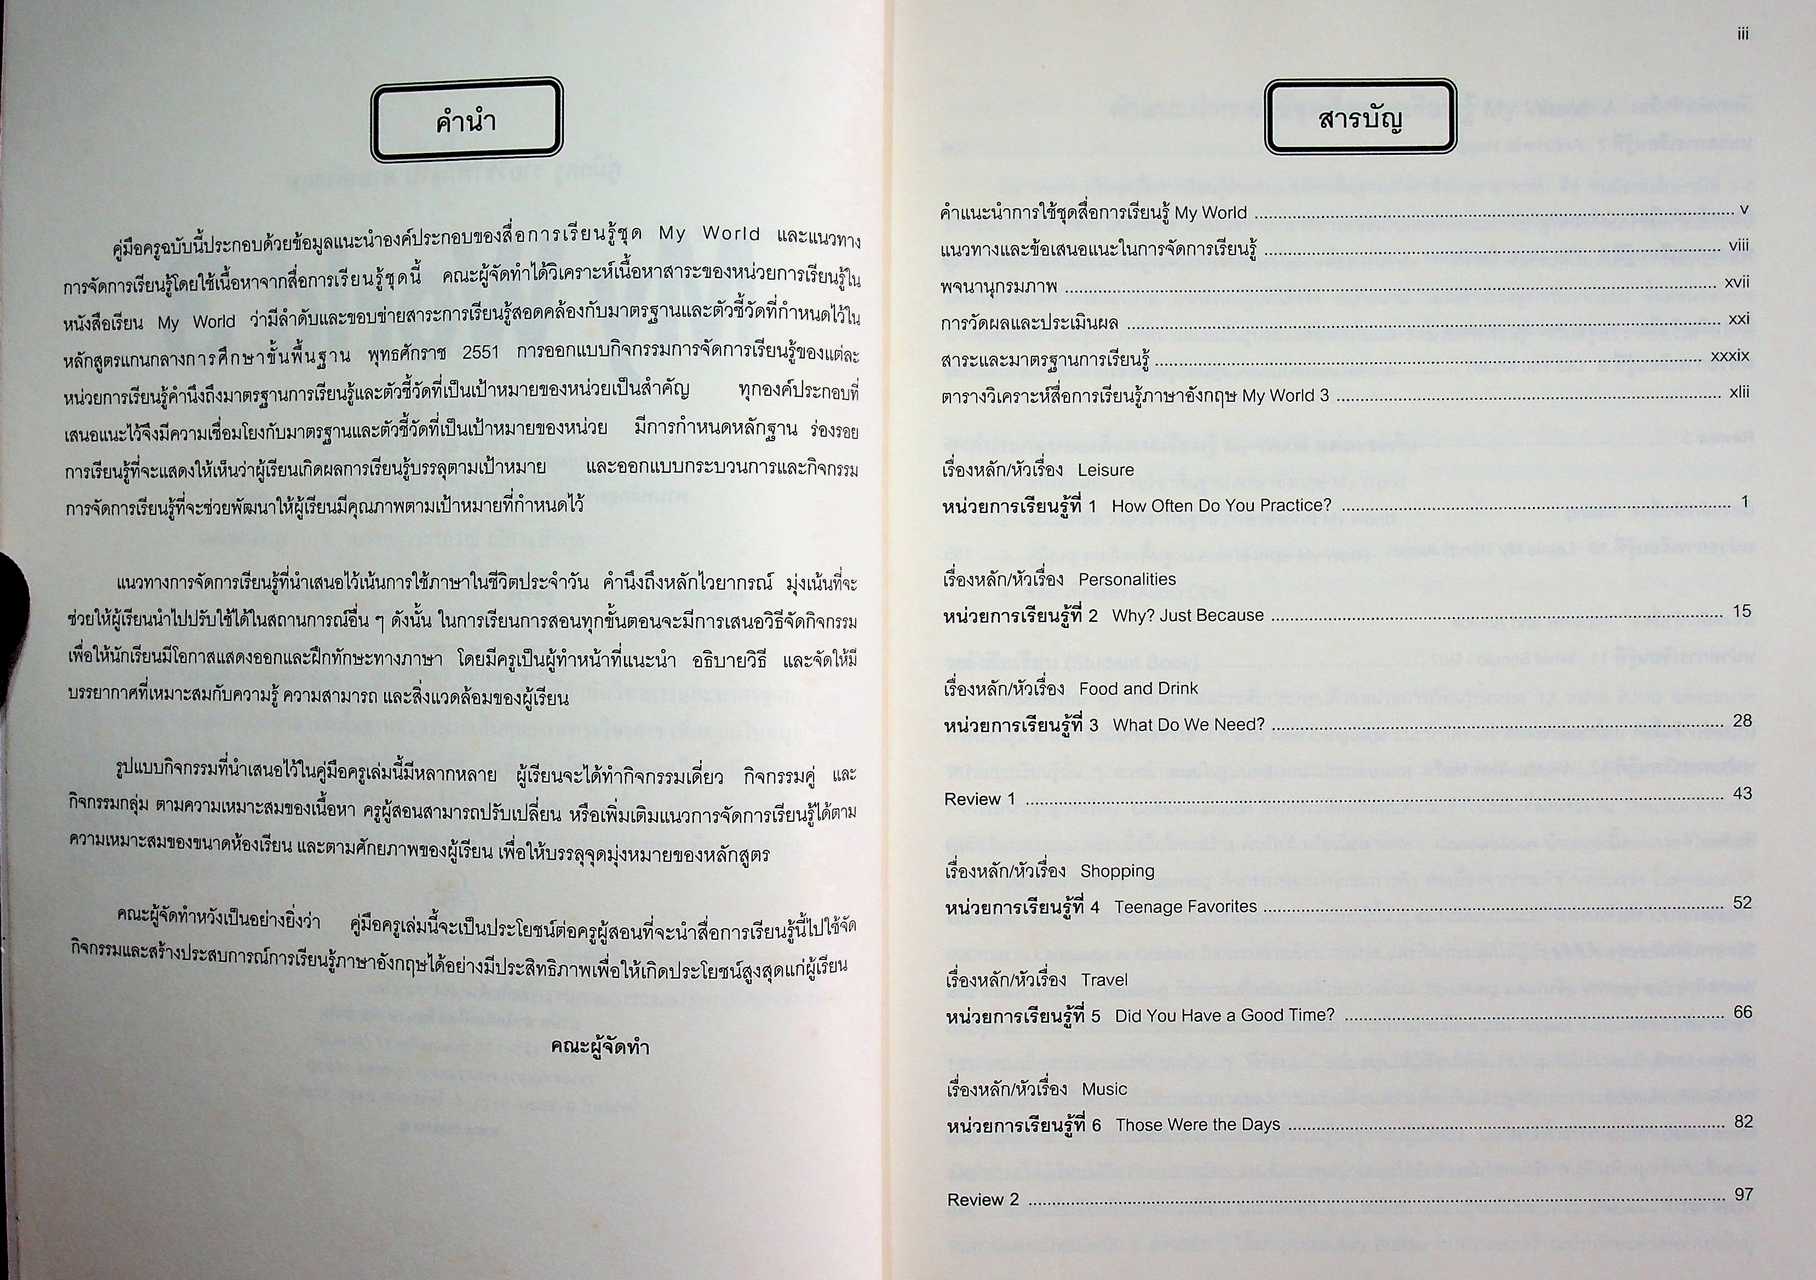 คำนำ
คู่มือครูฉบับนี้ประกอบด้วยข้อมูลแนะนำองค์ประกอบของสื่อการเรียนรู้ชุด My World และแนวทาง
การจัดการเรียนรู้โดยใช้เนื้อหาจากสื่อการเรียนรู้ชุดนี้ คณะผู้จัดทำได้วิเคราะห์เนื้อหาสาระของหน่วยการเรียนรู้ใน
หนังสือเรียน My World ว่ามีลำดับและขอบข่ายสาระการเรียนรู้สอดคล้องกับมาตรฐานและตัวชี้วัดที่กำหนดไว้ใน
หลักสูตรแกนกลางการศึกษาขั้นพื้นฐาน พุทธศักราช 2551 การออกแบบกิจกรรมการจัดการเรียนรู้ของแต่ละ
หน่วยการเรียนรู้คำนึงถึงมาตรฐานการเรียนรู้และตัวชี้วัดที่เป็นเป้าหมายของหน่วยเป็นสำคัญ ทุกองค์ประกอบที่
เสนอแนะไว้จึงมีความเชื่อมโยงกับมาตรฐานและตัวชี้วัดที่เป็นเป้าหมายของหน่วย มีการกำหนดหลักฐาน ร่องรอย
การเรียนรู้ที่จะแสดงให้เห็นว่าผู้เรียนเกิดผลการเรียนรู้บรรลุตามเป้าหมาย และออกแบบกระบวนการและกิจกรรม
การจัดการเรียนรู้ที่จะช่วยพัฒนาให้ผู้เรียนมีคุณภาพตามเป้าหมายที่กำหนดไว้
แนวทางการจัดการเรียนรู้ที่นำเสนอไว้เน้นการใช้ภาษาในชีวิตประจำวัน คำนึงถึงหลักไวยากรณ์ มุ่งเน้นที่จะ
ช่วยให้ผู้เรียนนำไปปรับใช้ได้ในสถานการณ์อื่น ๆ ดังนั้น ในการเรียนการสอนทุกขั้นตอนจะมีการเสนอวิธีจัดกิจกรรม
เพื่อให้นักเรียนมีโอกาสแสดงออกและฝึกทักษะทางภาษา โดยมีครูเป็นผู้ทำหน้าที่แนะนำ อธิบายวิธี และจัดให้มี
บรรยากาศที่เหมาะสมกับความรู้ ความสามารถ และสิ่งแวดล้อมของผู้เรียน
รูปแบบกิจกรรมที่นำเสนอไว้ในคู่มือครูเล่มนี้มีหลากหลาย ผู้เรียนจะได้ทำกิจกรรมเดี่ยว กิจกรรมคู่ และ
กิจกรรมกลุ่ม ตามความเหมาะสมของเนื้อหา ครูผู้สอนสามารถปรับเปลี่ยน หรือเพิ่มเติมแนวการจัดการเรียนรู้ได้ตาม
ความเหมาะสมของขนาดห้องเรียน และตามศักยภาพของผู้เรียน เพื่อให้บรรลุจุดมุ่งหมายของหลักสูตร
คณะผู้จัดทำหวังเป็นอย่างยิ่งว่า คู่มือครูเล่มนี้จะเป็นประโยชน์ต่อครูผู้สอนที่จะนำสื่อการเรียนรู้นี้ไปใช้จัด
กิจกรรมและสร้างประสบการณ์การเรียนรู้ภาษาอังกฤษได้อย่างมีประสิทธิภาพเพื่อให้เกิดประโยชน์สูงสุดแก่ผู้เรียน
คณะผู้จัดทำ
iii
สารบัญ
คำแนะนำการใช้ชุดสื่อการเรียนรู้ My World ... v
แนวทางและข้อเสนอแนะในการจัดการเรียนรู้ ... viii
พจนานุกรมภาพ ... xvii
การวัดผลและประเมินผล ... xxi
สาระและมาตรฐานการเรียนรู้ ... xxxix
ตารางวิเคราะห์สื่อการเรียนรู้ภาษาอังกฤษ My World 3 ... xlii
เรื่องหลัก/หัวเรื่อง Leisure
หน่วยการเรียนรู้ที่ 1 How Often Do You Practice? ... 1
เรื่องหลัก/หัวเรื่อง Personalities
หน่วยการเรียนรู้ที่ 2 Why? Just Because ... 15
เรื่องหลัก/หัวเรื่อง Food and Drink
หน่วยการเรียนรู้ที่ 3 What Do We Need? ... 28
Review 1 ... 43
เรื่องหลัก/หัวเรื่อง Shopping
หน่วยการเรียนรู้ที่ 4 Teenage Favorites ... 52
เรื่องหลัก/หัวเรื่อง Travel
หน่วยการเรียนรู้ที่ 5 Did You Have a Good Time? ... 66
เรื่องหลัก/หัวเรื่อง Music
หน่วยการเรียนรู้ที่ 6 Those Were the Days ... 82
Review 2 ... 97